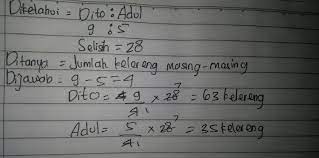 Diketahui = Dito : Adul
9 : 5
Selisih = 28
Ditanya = Jumlah kelereng masing-masing
Dijawab = 9 - 5 = 4
Dito = 9/4 x 28 7 = 63 kelereng
Adul = 5/4 1 x 28 7 = 35 kelereng